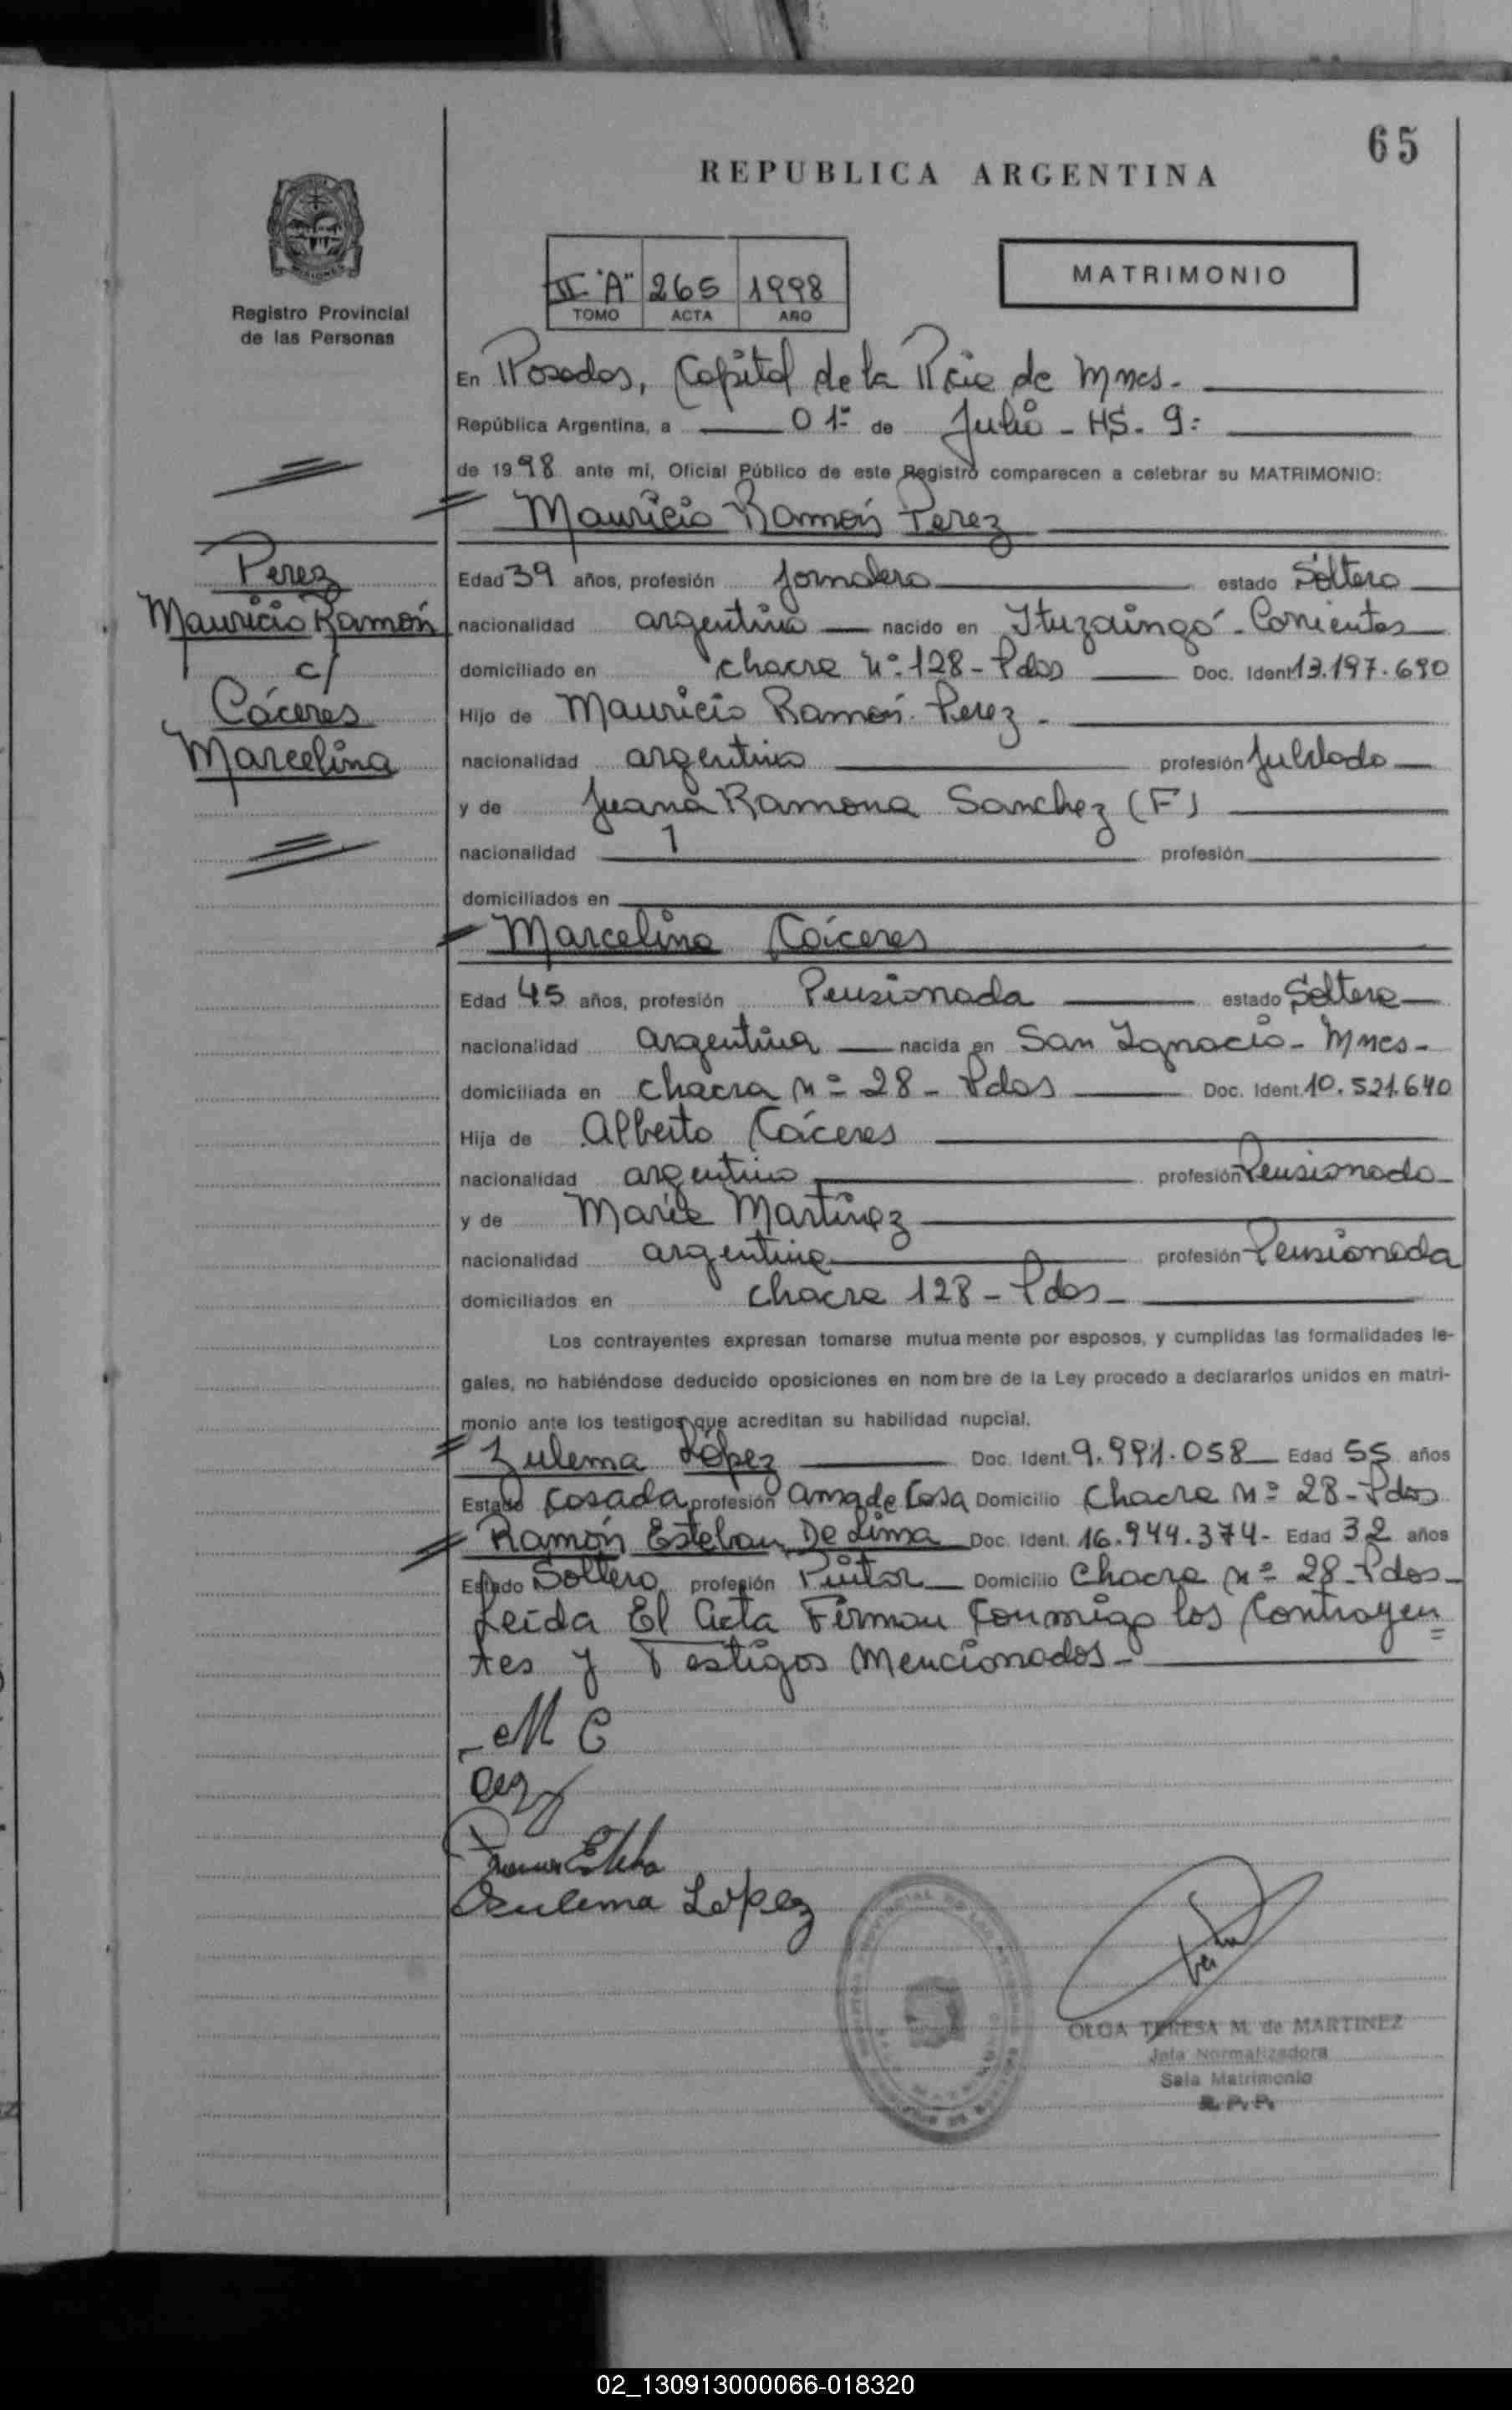 65
REPUBLICA ARGENTINA
II "A" 265 1998
TOMO ACTA AÑO
MATRIMONIO
Registro Provincial
de las Personas
En Posadas, Capital de la Pcia de Mnes.
República Argentina, a 01º de Julio - HS. 9:
de 1998 ante mí, Oficial Público de este Registro comparecen a celebrar su MATRIMONIO:
Mauricio Ramón Perez
Perez
Mauricio Ramón
c/
Cáceres
Marcelina
Edad 39 años, profesión Jornalero estado Soltero
nacionalidad argentino nacido en Ituzaingó - Corrientes
domiciliado en chacra Nº 128 - Pdas Doc. Ident 13.197.690
Hijo de Mauricio Ramón Perez -
nacionalidad argentino profesión Jubilado
y de Juana Ramona Sanchez (F)
nacionalidad profesión
domiciliados en
Marcelina Cáceres
Edad 45 años, profesión Pensionada estado Soltera
nacionalidad argentina nacida en San Ignacio - Mnes -
domiciliada en chacra nº 28 - Pdas Doc. Ident. 10.521.640
Hija de Alberto Cáceres
nacionalidad argentino profesión Pensionado
y de María Martinez
nacionalidad argentina profesión Pensionada
domiciliados en chacra 128 - Pdas -
Los contrayentes expresan tomarse mutua mente por esposos, y cumplidas las formalidades le-
gales, no habiéndose deducido oposiciones en nom bre de la Ley procedo a declararlos unidos en matri-
monio ante los testigos que acreditan su habilidad nupcial.
Zulema López Doc. Ident. 9.991.058 Edad 55 años
Estado Casada profesión ama de Casa Domicilio Chacra nº 28 - Pdas
Ramón Esteban De Lima Doc. Ident. 16.949.374 - Edad 32 años
Estado Soltero profesión Pintor Domicilio Chacra nº 28 - Pdas -
Leída El acta Firman Conmigo los Contrayen
tes y Testigos Mencionados -
M C
Zulema Lopez
OLGA TERESA M. de MARTINEZ
Jefa Normalizadora
Sala Matrimonio
R. P. P.
02_130913000066-018320